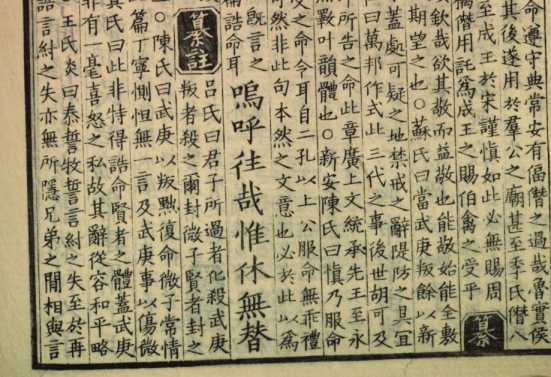 命遵守典常安有偪僭之過哉魯實侯
其後遂用於羣公之廟甚至季氏僭八
至成王於宋謹愼如此必無賜周
僭用託爲成王之賜伯禽之受乎
纂
欽哉欲其敬而益敬也能敬始能全敷
期望之也○蘇氏曰當武庚叛餘以新
蓋處可疑之地禁戒之辭隄防之具宜
曰萬邦作式此三代之事後世胡可及
所告之命此章廣上文統承先王至永
無斁叶韻體也○新安陳氏曰愼乃服命
之命令耳自二孔以上公服命無乖禮
然非此句本然之文意也必於此以爲
旣言之
篇誥命耳
嗚呼往哉惟休無替
纂註
吕氏曰君子所過者化殺武庚
叛者殺之爾封微子賢者封之
○陳氏曰武庚以叛黜復命微子常情
篇丁寧惻怛無一言及武庚事以傷微
氏曰此非特得誥命賢者之體蓋武庚
非有一毫喜怒之私故其辭從容和平略
王氏炎曰泰誓牧誓言紂之失至於再
誥言紂之失亦無所隱兄弟之間相與言